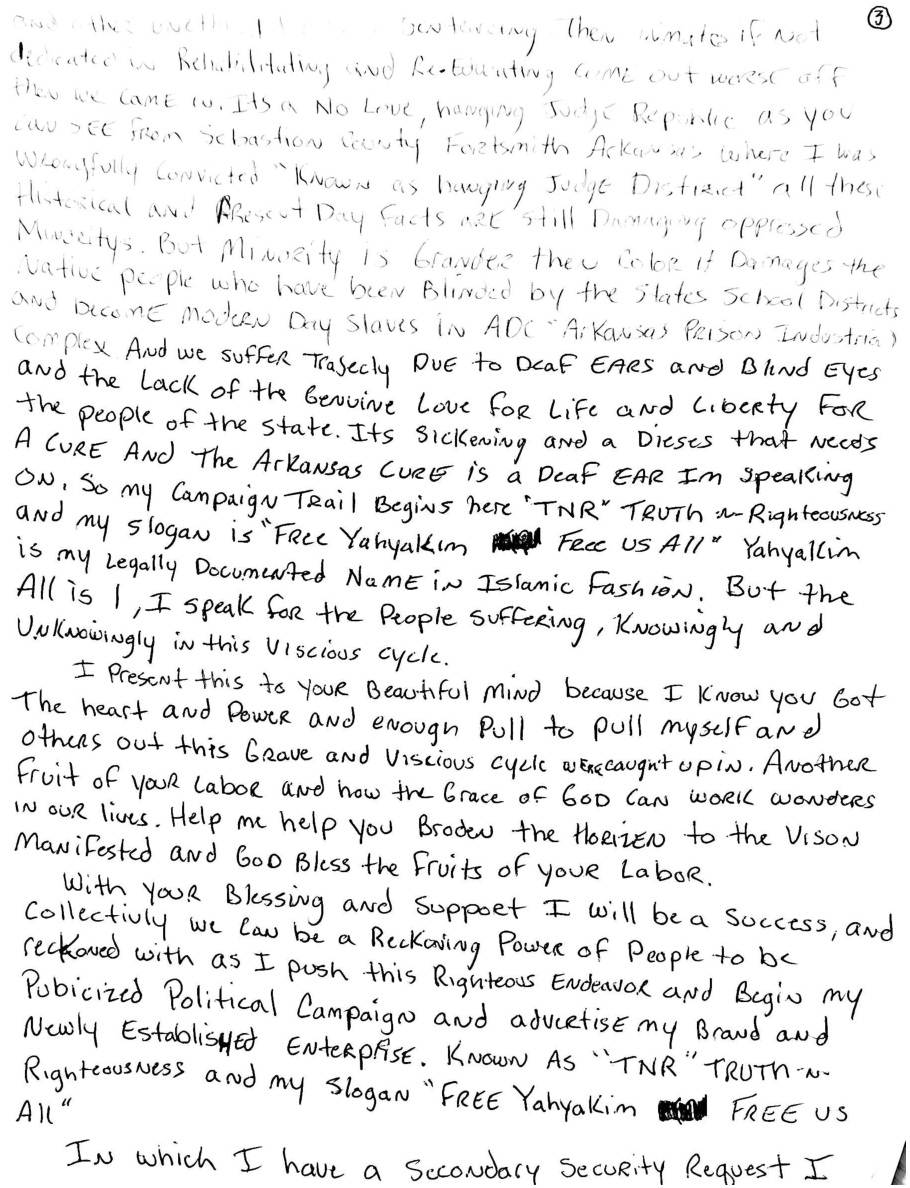 ③
and other uneth Sentencing Then inmates if Not
dedicated in Rehabilitating and Re-Educating come out worse off
then we came in. Its a No Love, hanging Judge Republic as you
can SEE from Sebastion County Fortsmith Arkansas where I was
wrongfully convicted "Known as hanging Judge District" all these
Historical and PResent Day Facts aRE still Damaging oppressed
Minoritys. But Minority is Grander then Color it Damages the
Native people who have been Blinded by the States School Districts
and become modern Day Slaves in ADC "Arkansas Prison Industrial
Complex And we suffer Trajecly Due to Deaf EARS and Blind Eyes
and the Lack of the Genuine Love for Life and Liberty For
the people of the state. Its Sickening and a Dieses that needs
A CURE And The Arkansas CURE is a Deaf EAR Im speaking
ON. So my Campaign Trail Begins here "TNR" TRUTH -n- Righteousness
and my slogan is "Free Yahyakim Free us All" Yahyakim
is my Legally Documented Name in Islamic Fashion. But the
All is 1, I speak for the People Suffering, Knowingly and
UnKnowingly in this Viscious cycle.
I Present this to your Beautiful mind because I Know you Got
The heart and Power and enough Pull to pull myself and
others out this Grave and Viscious cycle wERE caught up in. Another
Fruit of your Labor and how the Grace of GOD Can work wonders
in our lives. Help me help you Broden the HORIZEN to the VISON
Manifested and GOD Bless the Fruits of your Labor.
With your Blessing and Support I will be a Success, and
Collectivly we Can be a Reckoning Power of People to be
reckoned with as I push this Righteous Endeavor and Begin my
Pubicized Political Campaign and advertise my Brand and
Newly Established Enterprise. Known As "TNR" TRUTH -N-
Righteousness and my slogan "FREE Yahyakim FREE US
All"
In which I have a Secondary Security Request I